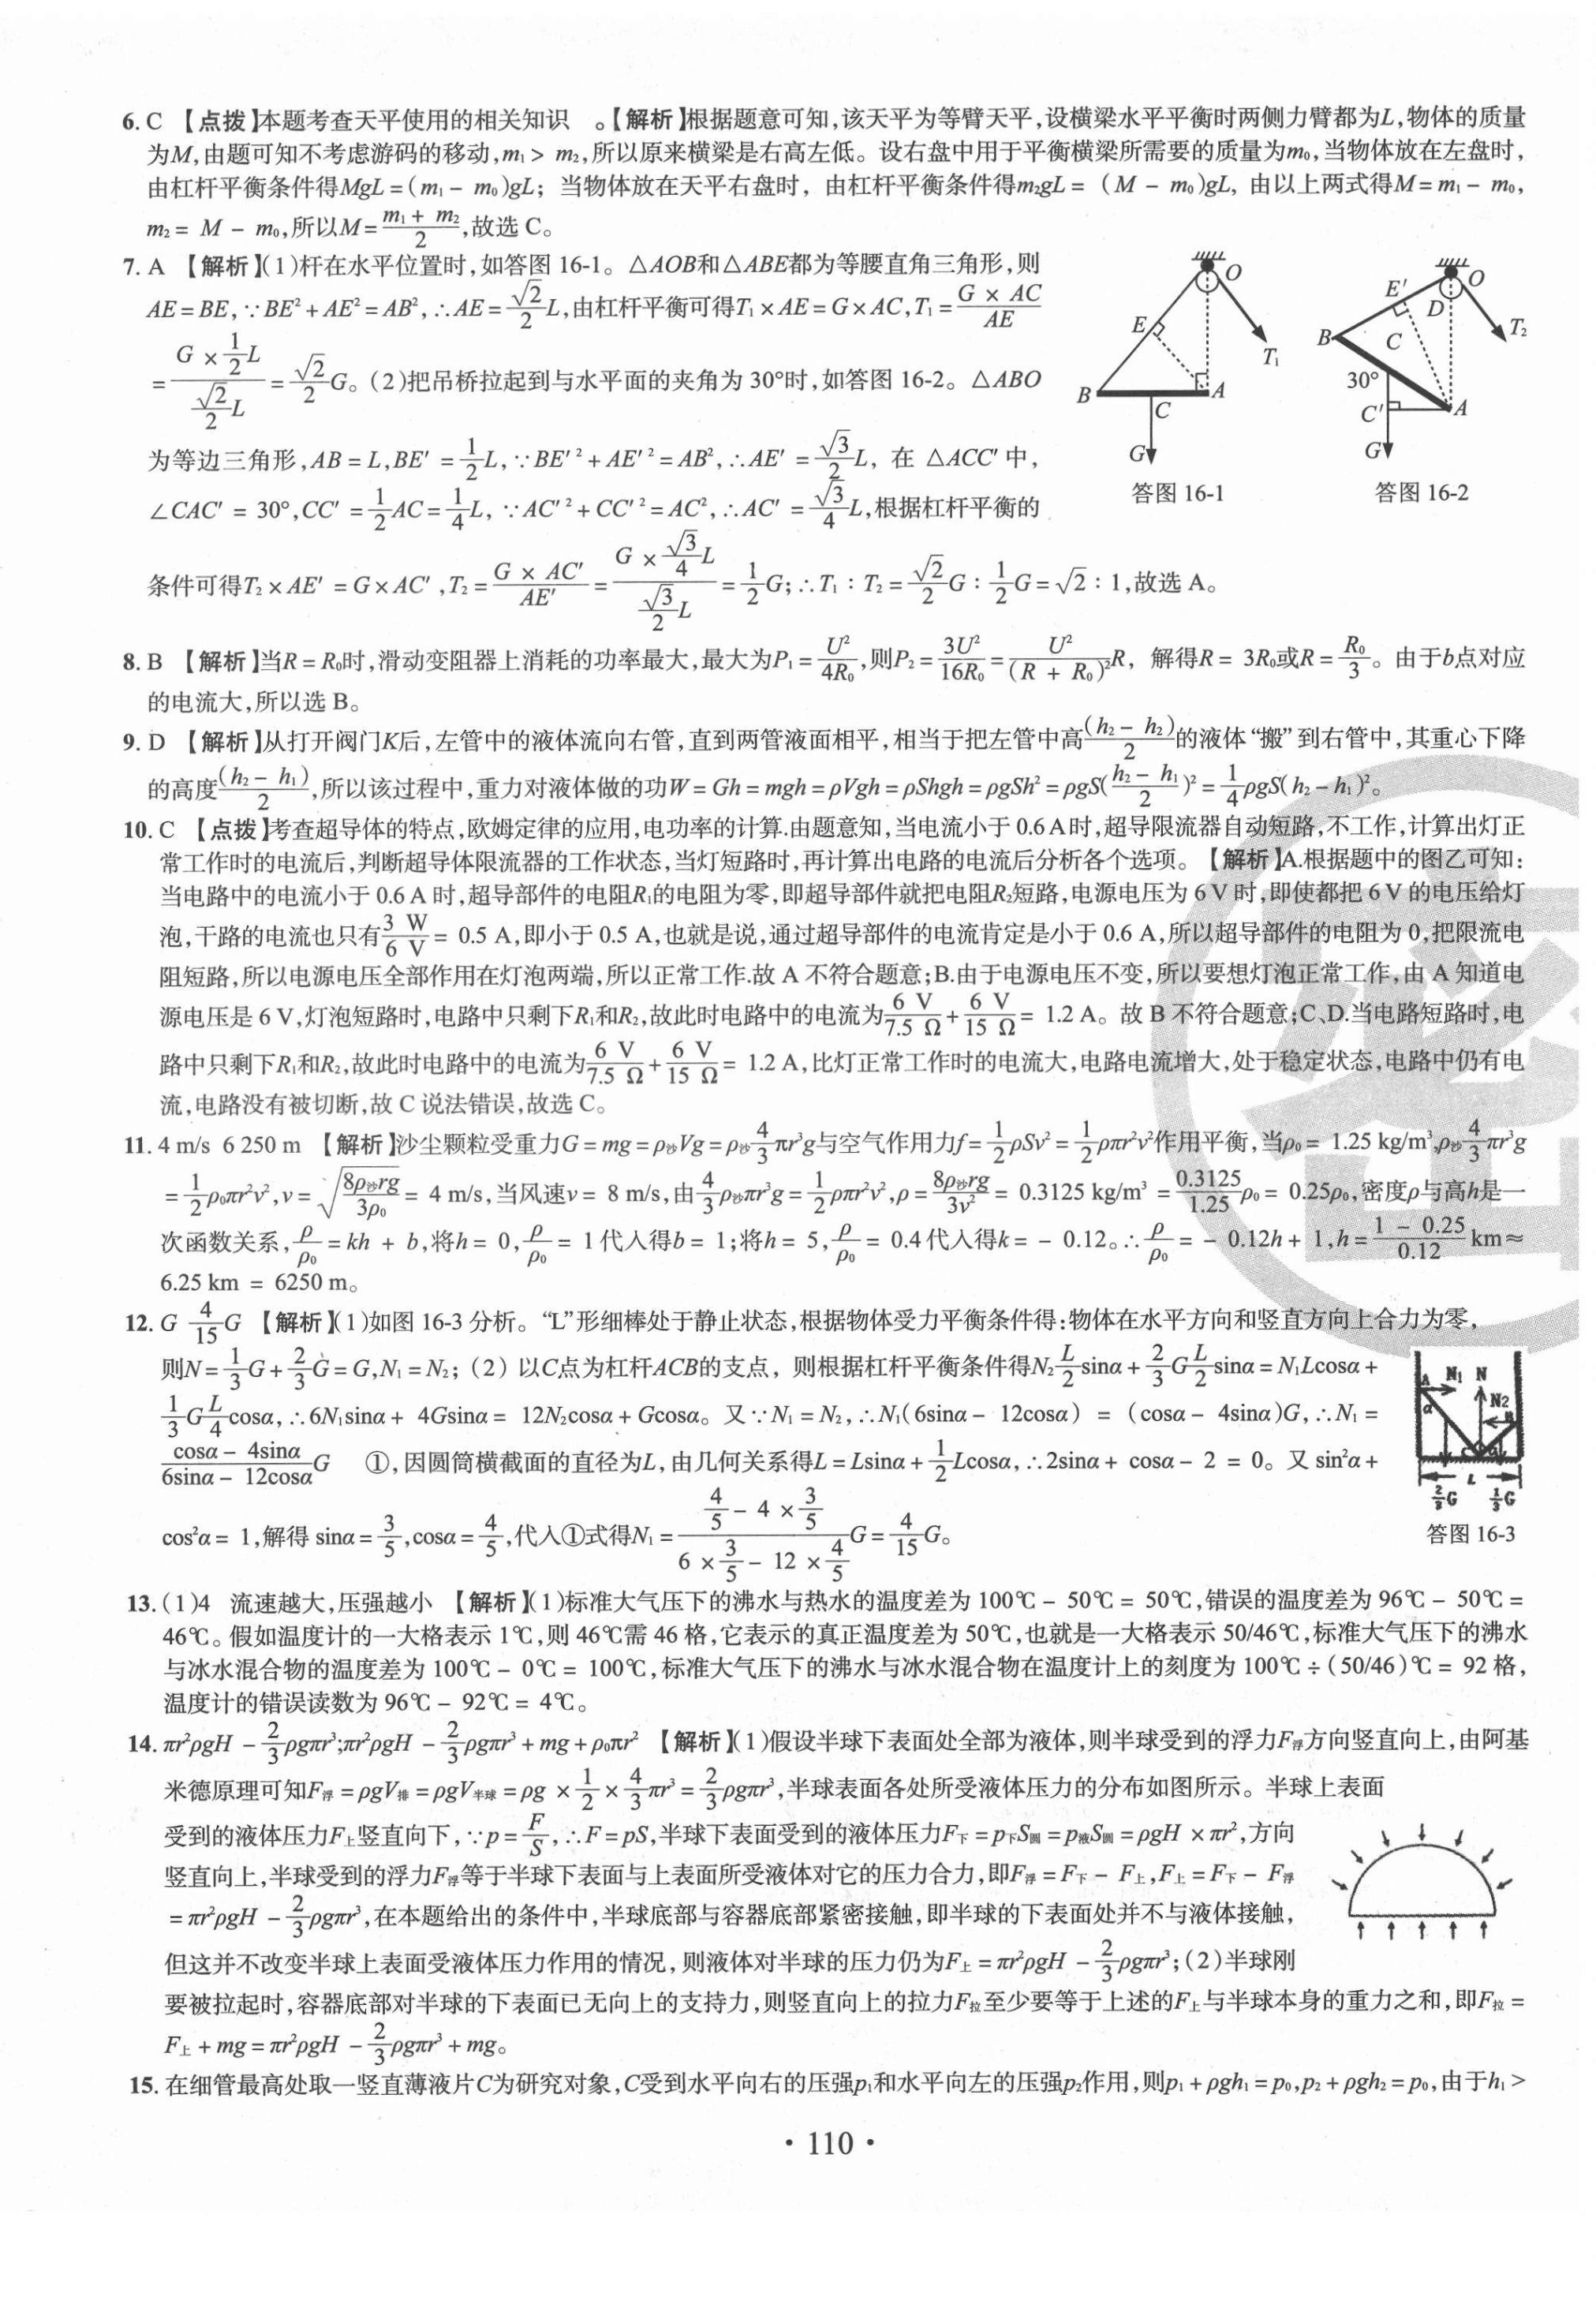 6. C 【点拨】本题考查天平使用的相关知识 。【解析】根据题意可知,该天平为等臂天平,设横梁水平平衡时两侧力臂都为L,物体的质量
为M,由题可知不考虑游码的移动,m₁> m₂,所以原来横梁是右高左低。设右盘中用于平衡横梁所需要的质量为m₀,当物体放在左盘时,
由杠杆平衡条件得MgL=(m₁- m₀)gL; 当物体放在天平右盘时, 由杠杆平衡条件得m₂gL= (M - m₀)gL, 由以上两式得M= m₁- m₀,
m₂= M - m₀,所以M=(m₁+ m₂)/2,故选 C。
7. A 【解析】(1)杆在水平位置时,如答图 16-1。△AOB和△ABE都为等腰直角三角形,则
AE=BE,∵BE²+AE²=AB²,∴AE=√2/2 L,由杠杆平衡可得T₁×AE=G×AC,T₁=(G × AC)/AE
=(G × 1/2 L)/(√2/2 L)=√2/2 G。(2)把吊桥拉起到与水平面的夹角为30°时,如答图 16-2。△ABO
为等边三角形,AB=L,BE′=1/2 L,∵BE′²+AE′²=AB²,∴AE′=√3/2 L, 在 △ACC′中,
∠CAC′ = 30°,CC′=1/2 AC=1/4 L, ∵AC′²+CC′²=AC²,∴AC′=√3/4 L,根据杠杆平衡的
条件可得T₂×AE′=G×AC′,T₂=(G × AC′)/AE′=(G × √3/4 L)/(√3/2 L)=1/2 G;∴T₁∶T₂=√2/2 G∶1/2 G=√2∶1,故选 A。
O
E
T₁
B
C
A
G
答图 16-1
O
E′
D
T₂
B
C
30°
C′
A
G
答图 16-2
8. B 【解析】当R=R₀时,滑动变阻器上消耗的功率最大,最大为P₁=U²/4R₀,则P₂=3U²/16R₀=U²/(R + R₀)² R, 解得R= 3R₀或R=R₀/3。由于b点对应
的电流大,所以选 B。
9. D 【解析】从打开阀门K后,左管中的液体流向右管,直到两管液面相平,相当于把左管中高(h₂- h₂)/2的液体“搬”到右管中,其重心下降
的高度(h₂- h₁)/2,所以该过程中,重力对液体做的功W=Gh=mgh=ρVgh=ρShgh=ρgSh²=ρgS((h₂- h₁)/2)²=1/4 ρgS(h₂-h₁)²。
10. C 【点拨】考查超导体的特点,欧姆定律的应用,电功率的计算.由题意知,当电流小于 0.6 A时,超导限流器自动短路,不工作,计算出灯正
常工作时的电流后,判断超导体限流器的工作状态,当灯短路时,再计算出电路的电流后分析各个选项。【解析】A.根据题中的图乙可知:
当电路中的电流小于 0.6 A 时,超导部件的电阻R₁的电阻为零,即超导部件就把电阻R₂短路,电源电压为 6 V 时,即使都把 6 V 的电压给灯
泡,干路的电流也只有3 W/6 V= 0.5 A,即小于 0.5 A,也就是说,通过超导部件的电流肯定是小于 0.6 A,所以超导部件的电阻为 0,把限流电
阻短路,所以电源电压全部作用在灯泡两端,所以正常工作.故 A 不符合题意;B.由于电源电压不变,所以要想灯泡正常工作,由 A 知道电
源电压是 6 V,灯泡短路时,电路中只剩下R₁和R₂,故此时电路中的电流为6 V/7.5 Ω+6 V/15 Ω= 1.2 A。故 B 不符合题意;C、D.当电路短路时,电
路中只剩下R₁和R₂,故此时电路中的电流为6 V/7.5 Ω+6 V/15 Ω= 1.2 A,比灯正常工作时的电流大,电路电流增大,处于稳定状态,电路中仍有电
流,电路没有被切断,故 C 说法错误,故选 C。
11. 4 m/s 6 250 m 【解析】沙尘颗粒受重力G=mg=ρ沙Vg=ρ沙4/3 πr³g与空气作用力f=1/2 ρSv²=1/2 ρπr²v²作用平衡,当ρ₀= 1.25 kg/m³,ρ沙4/3 πr³g
=1/2 ρ₀πr²v²,v=√(8ρ沙rg/3ρ₀)= 4 m/s,当风速v= 8 m/s,由4/3 ρ沙πr³g=1/2 ρπr²v²,ρ=8ρ沙rg/3v²= 0.3125 kg/m³=0.3125/1.25 ρ₀= 0.25ρ₀,密度ρ与高h是一
次函数关系,ρ/ρ₀=kh + b,将h= 0,ρ/ρ₀= 1代入得b= 1;将h= 5,ρ/ρ₀= 0.4代入得k= - 0.12。∴ρ/ρ₀= - 0.12h+ 1,h=(1 - 0.25)/0.12 km≈
6.25 km = 6250 m。
12. G 4/15 G 【解析】(1)如图 16-3 分析。“L”形细棒处于静止状态,根据物体受力平衡条件得:物体在水平方向和竖直方向上合力为零,
则N=1/3 G+2/3 G=G,N₁=N₂; (2) 以C点为杠杆ACB的支点, 则根据杠杆平衡条件得N₂L/2 sinα+2/3 G L/2 sinα=N₁Lcosα+
1/3 G L/4 cosα,∴6N₁sinα+ 4Gsinα= 12N₂cosα+Gcosα。又∵N₁=N₂,∴N₁(6sinα- 12cosα) = (cosα- 4sinα)G,∴N₁=
(cosα- 4sinα)/(6sinα- 12cosα) G ①,因圆筒横截面的直径为L,由几何关系得L=Lsinα+1/2 Lcosα,∴2sinα+ cosα- 2 = 0。又 sin²α+
cos²α= 1,解得 sinα=3/5,cosα=4/5,代入①式得N₁=(4/5 - 4 × 3/5)/(6 × 3/5 - 12 × 4/5) G=4/15 G。
A N₁ N
α N₂
L
2/3 G 1/3 G
答图 16-3
13. (1)4 流速越大,压强越小 【解析】(1)标准大气压下的沸水与热水的温度差为 100℃- 50℃= 50℃,错误的温度差为 96℃- 50℃=
46℃。假如温度计的一大格表示 1℃,则 46℃需 46 格,它表示的真正温度差为 50℃,也就是一大格表示 50/46℃,标准大气压下的沸水
与冰水混合物的温度差为 100℃- 0℃= 100℃,标准大气压下的沸水与冰水混合物在温度计上的刻度为 100℃÷(50/46)℃= 92 格,
温度计的错误读数为 96℃- 92℃= 4℃。
14. πr²ρgH -2/3 ρgπr³;πr²ρgH -2/3 ρgπr³+mg+ρ₀πr² 【解析】(1)假设半球下表面处全部为液体,则半球受到的浮力F浮方向竖直向上,由阿基
米德原理可知F浮=ρgV排=ρgV半球=ρg ×1/2×4/3 πr³=2/3 ρgπr³,半球表面各处所受液体压力的分布如图所示。半球上表面
受到的液体压力F上竖直向下,∵p=F/S,∴F=pS,半球下表面受到的液体压力F下=p下S圆=p液S圆=ρgH ×πr²,方向
竖直向上,半球受到的浮力F浮等于半球下表面与上表面所受液体对它的压力合力,即F浮=F下- F上,F上=F下- F浮
=πr²ρgH -2/3 ρgπr³,在本题给出的条件中,半球底部与容器底部紧密接触,即半球的下表面处并不与液体接触,
但这并不改变半球上表面受液体压力作用的情况,则液体对半球的压力仍为F上=πr²ρgH -2/3 ρgπr³;(2)半球刚
要被拉起时,容器底部对半球的下表面已无向上的支持力,则竖直向上的拉力F拉至少要等于上述的F上与半球本身的重力之和,即F拉=
F上+mg=πr²ρgH -2/3 ρgπr³+mg。
15. 在细管最高处取一竖直薄液片C为研究对象,C受到水平向右的压强p₁和水平向左的压强p₂作用,则p₁+ρgh₁=p₀,p₂+ρgh₂=p₀,由于h₁>
· 110 ·